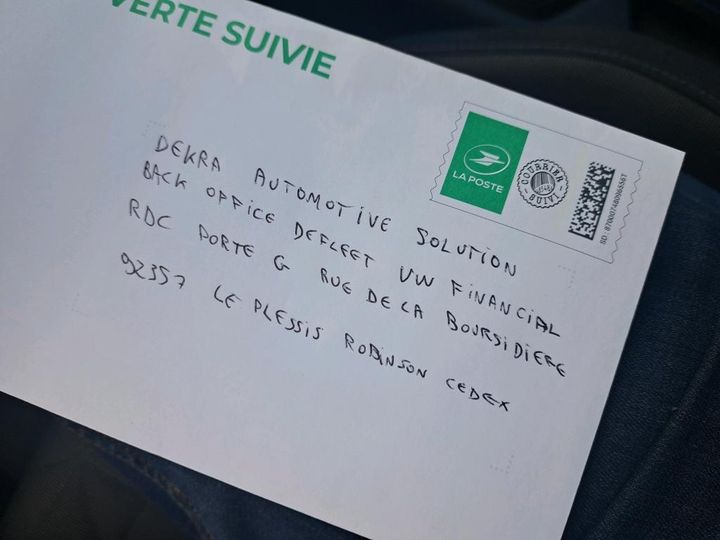 VERTE SUIVIE
LA POSTE
COURRIER
SUIVI
SD : 87000748096556T
DEKRA AUTOMOTIVE SOLUTION
BACK OFFICE DEFLEET VW FINANCIAL
RDC PORTE G RUE DE LA BOURSIDIERE
92357 LE PLESSIS ROBINSON CEDEX